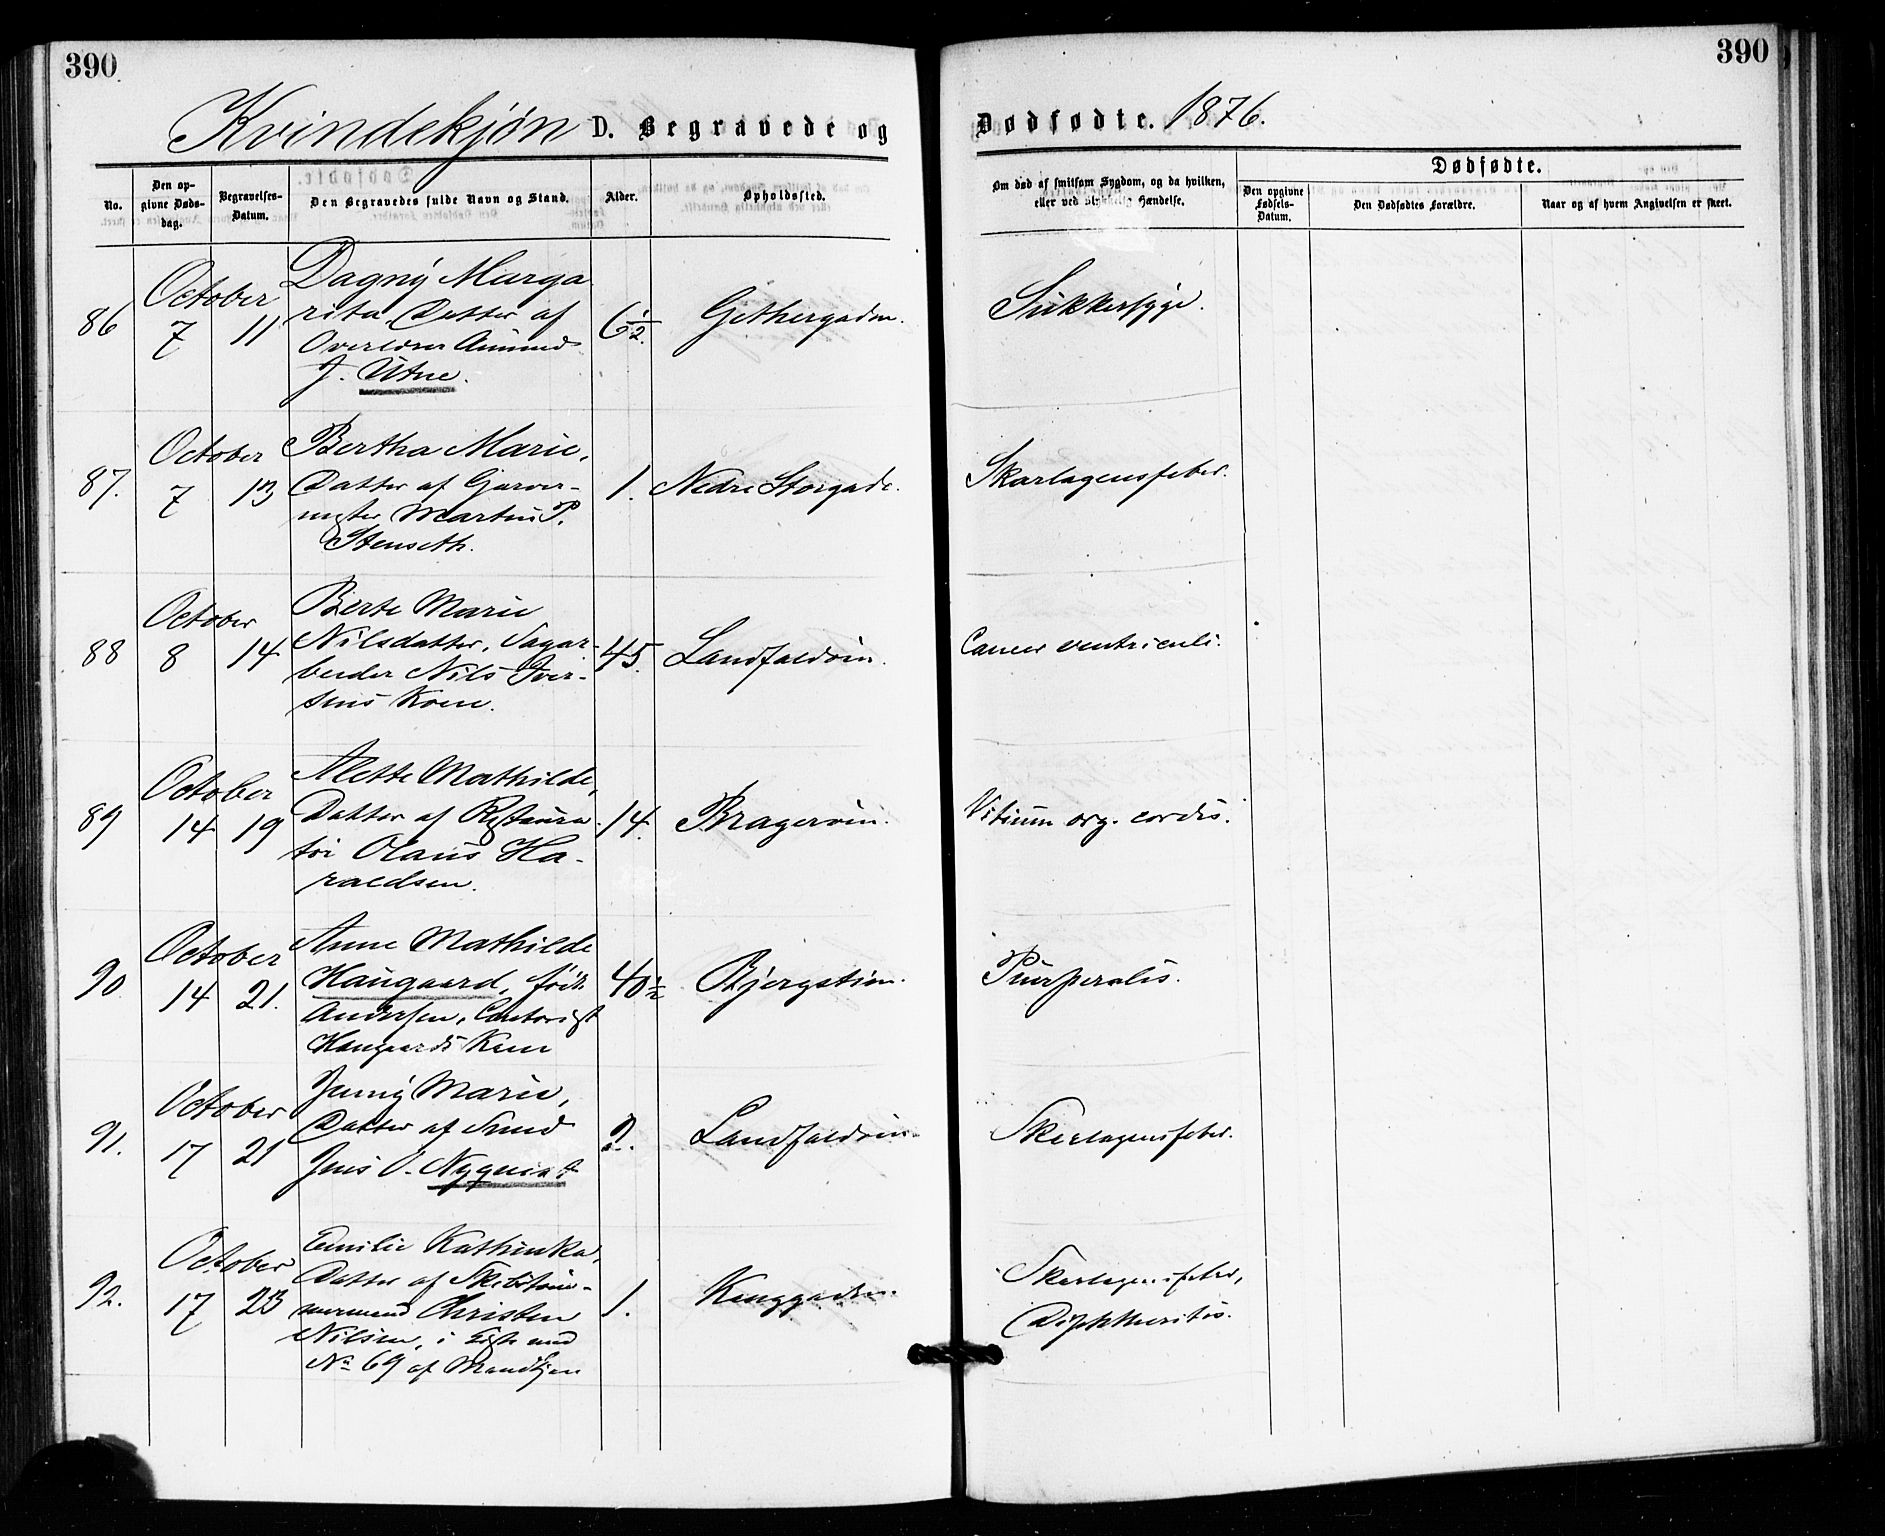 390
390
Kvindekjøn D. Begravede og Dødfødte. 1876.
No.
Den op-
givne Døds-
dag.
Begravelses-
Datum.
Den Begravedes fulde Navn og Stand.
Alder.
Opholdssted.
Om død af smitsom Sygdom, og da hvilken,
eller ved ulykkelig Hændelse.
Dødfødte.
Den opgivne
Fødsels-
Datum.
Den Dødfødtes Forældre.
Naar og af hvem Angivelsen er skeet.
86
October
7 11
Dagny Marga
rita Datter af
Overlærer Amund
J. Utne.
6 1/2.
Gethergaden.
Sukkersyge.
87.
October
7 13
Bertha Marie,
Datter af Garver-
mster Martin P.
Stenseth.
1.
Nedre Storgade.
Skarlagensfeber.
88
October
8 14
Berte Marie
Nilsdatter, Sagar-
beider Nils Iver-
sens Kone.
45.
Landfaldøen.
Cancer ventriculi.
89
October
14 19
Alette Mathilde,
Datter af Restaura-
tør Olaus Ha-
raldsen.
14.
Bragerøen.
Vitium org. cordis.
90
October
14 21.
Anne Mathilde
Haugaard, født
Andersen, Contorist
Haugaards Kone
40 1/2
Bjergstien.
Puerperalis.
91.
October
17 21
Jenny Marie,
Datter af Smed
Jens O. Nyquist
2.
Landfaldøen.
Skarlagensfeber.
92.
October
17 23
Emilie Kathinka,
Datter af Skibstøm-
mermand Christen
Nilsen, i Kiste med
No 69 af Mandkjøn
1.
Konggaden.
Skarlagensfeber,
Diphtheritis.